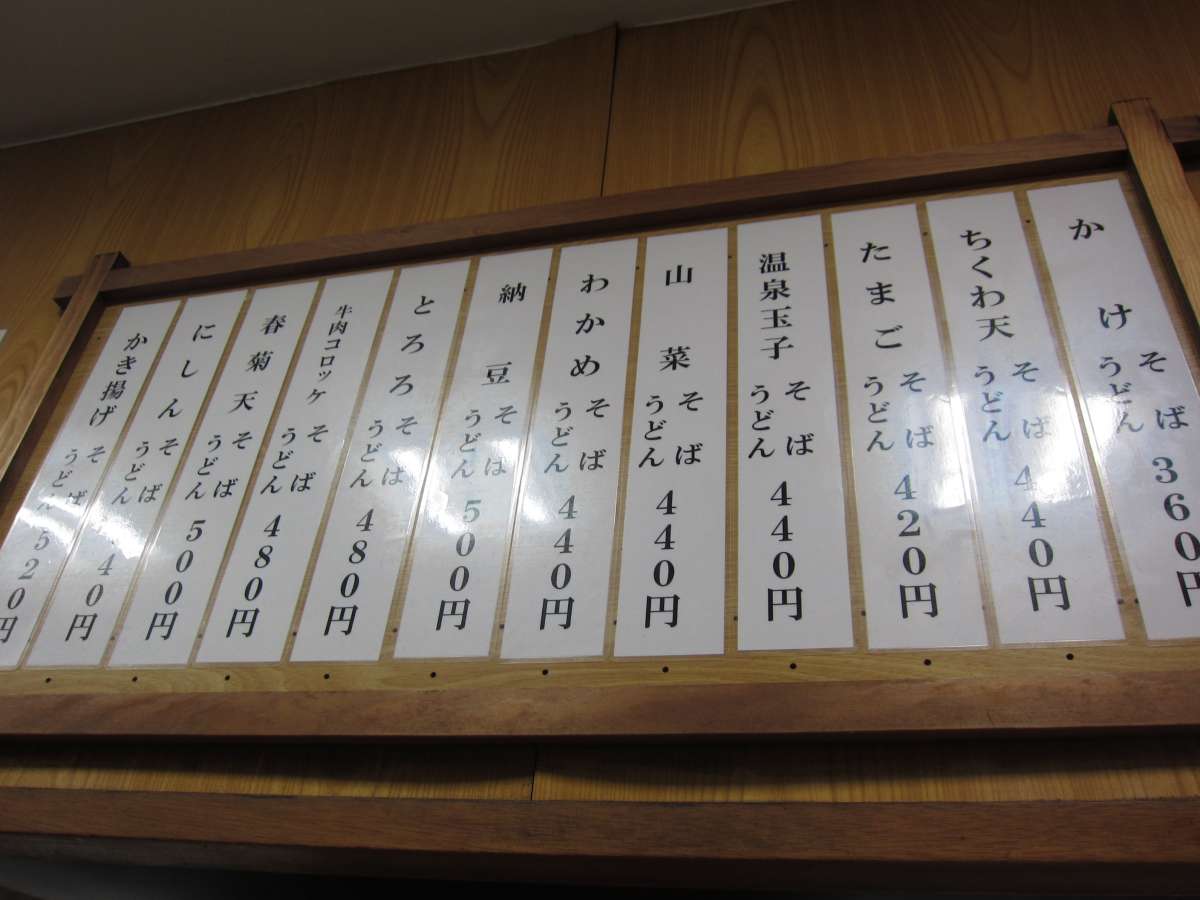 かけ そば うどん 360円
ちくわ天 そば うどん 440円
たまご そば うどん 420円
温泉玉子 そば うどん 440円
山菜 そば うどん 440円
わかめ そば うどん 440円
納豆 そば うどん 500円
とろろ そば うどん 480円
牛肉コロッケ そば うどん 480円
春菊天 そば うどん 500円
にしん そば うどん
かき揚げ そば うどん 520円